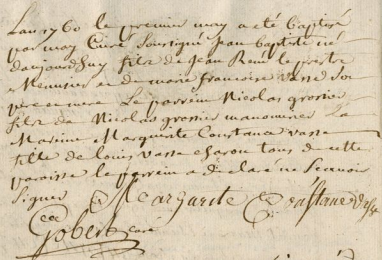 L'an 1760 le premier may a été baptisé
par moy Curé soussigné jean baptiste né
daujourdhuy fils de jean René le prestre
Menusier et de marie francoise vasse son
pere et mere Le parrein Nicolas grosier
fils de Nicolas grosier manouvrier La
Mareine Marguerite Constance vasse
fille de Louis vasse charon tous de cette
paroisse le parrein a déclaré ne scavoir
Signer
Margueite Constance Vasse
Gobert curé